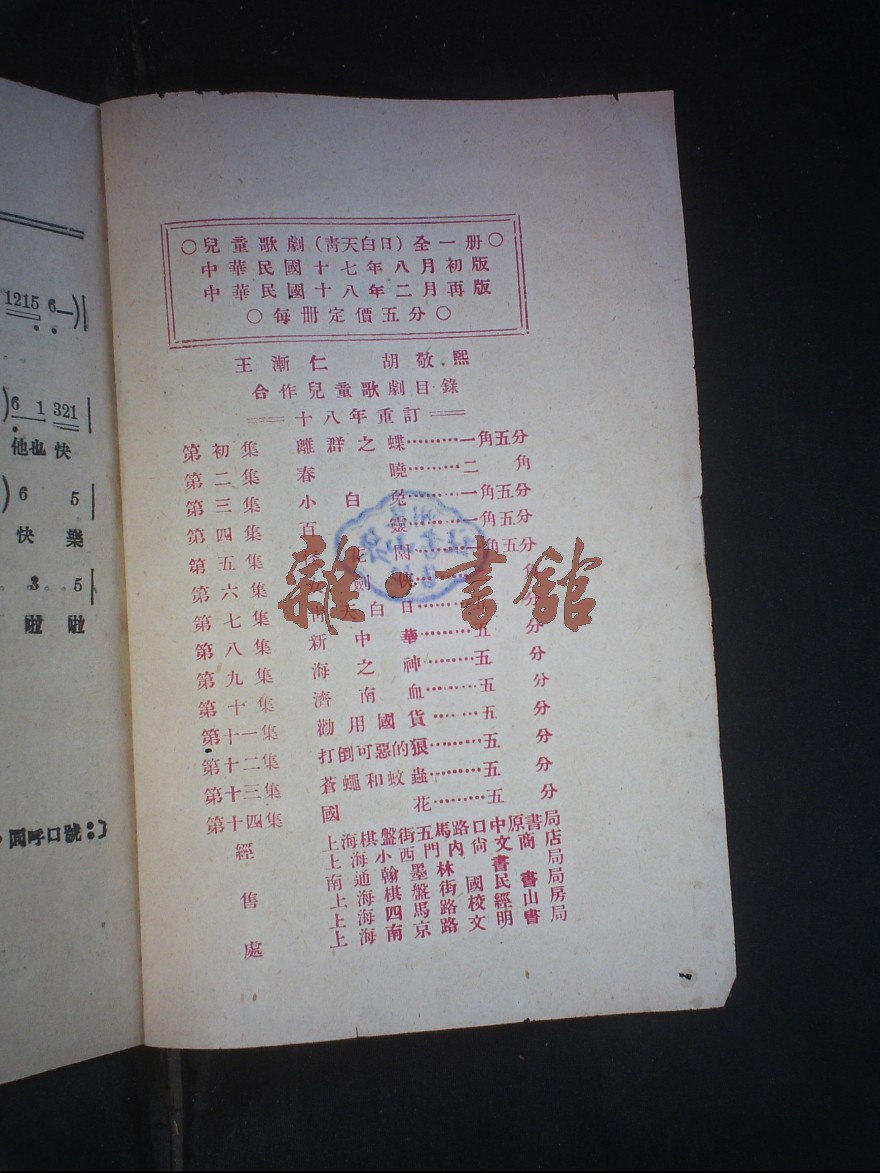 1215 6—)|
6 1 321|
他也快
6 5|
快樂
3 5|
啦啦
呼口號:〕
○兒童歌劇(青天白日)全一册○
中華民國十七年八月初版
中華民國十八年二月再版
○每册定價五分○
王漸仁 胡敬熙
合作兒童歌劇目錄
十八年重訂
第初集 離群之蝶………一角五分
第二集 春曉………二角
第三集 小白兔……一角五分
第四集 百靈……一角五分
第五集 園……一角五分
第六集 劍
第七集 青天白日……五分
第八集 新中華……五分
第九集 海之神……五分
第十集 濟南血……五分
第十一集 勸用國貨……五分
第十二集 打倒可惡的狼……五分
第十三集 蒼蠅和蚊蟲……五分
第十四集 國花……五分
經售處
上海棋盤街五馬路口中原書局
上海小西門內尚文商店
南通翰墨林書局
上海棋盤街國民書局
上海四馬路校經山房
上海南京路文明書局
雜·書館